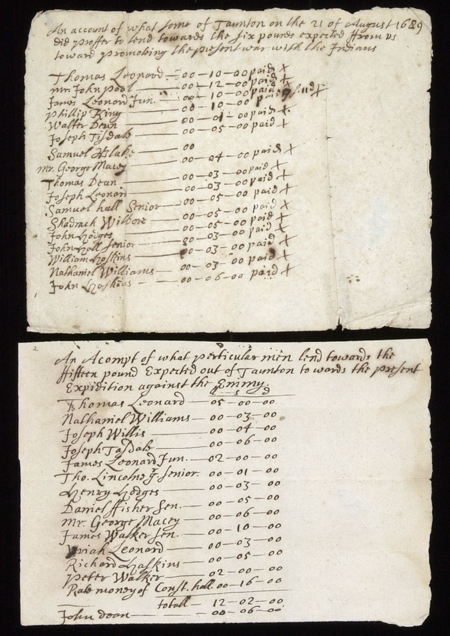 An account of what some of Taunton on the 21 of August 1689
did proffer to lend towards the six pounds expected from us
toward promoting the present war with the Indians
Thomas Leonard — 00—10—00 paid X
mr John pool — 00—12—00 paid X
James Leonard Jun. — 00—10—00 paid X
Phillip King — 00—10—00 paid
Walter Deus — 00—01—00 paid X
Joseph Tisdale — 00—05—00 paid X
Samuel — 00
mr. George Macey — 00—04—00 paid X
Thomas Dean — 00—03—00 paid X
Joseph Leonard — 00—03—00 paid X
Samuel hall Senior — 00—05—00 paid X
Shadrach Wilbore — 00—05—00 paid X
John Hodges — 00—05—00 paid X
John Hall Senior — 00—03—00 paid X
William Hoskins — 00—03—00 paid X
Nathaniel Williams — 00—05—00 paid X
John Hoskins — 00—06—00 paid X
An Acompt of what perticular men lend towards the
ffifteen pound Expected out of Taunton to wards the present
Expidition against the Emmy
Thomas Leonard — 05—00—00
Nathaniel Williams — 00—03—00
Joseph Willis — 00—04—00
Joseph Tasdale — 00—06—00
James Leonard Jun. — 02—00—00
Tho. Lincolne Senior. — 00—01—00
Henry Hodges — 00—03—00
Daniel ffisher Sen. — 00—05—00
Mr. George Macey — 00—06—00
James Walker Sen. — 00—10—00
Uriah Leonard — 00—03—00
Richard Haskins — 00—05—00
Peter Walker — 02—00—00
Rate money of Const. hall. 00—16—00
totall — 12—02—00
John dean — 00—06—00